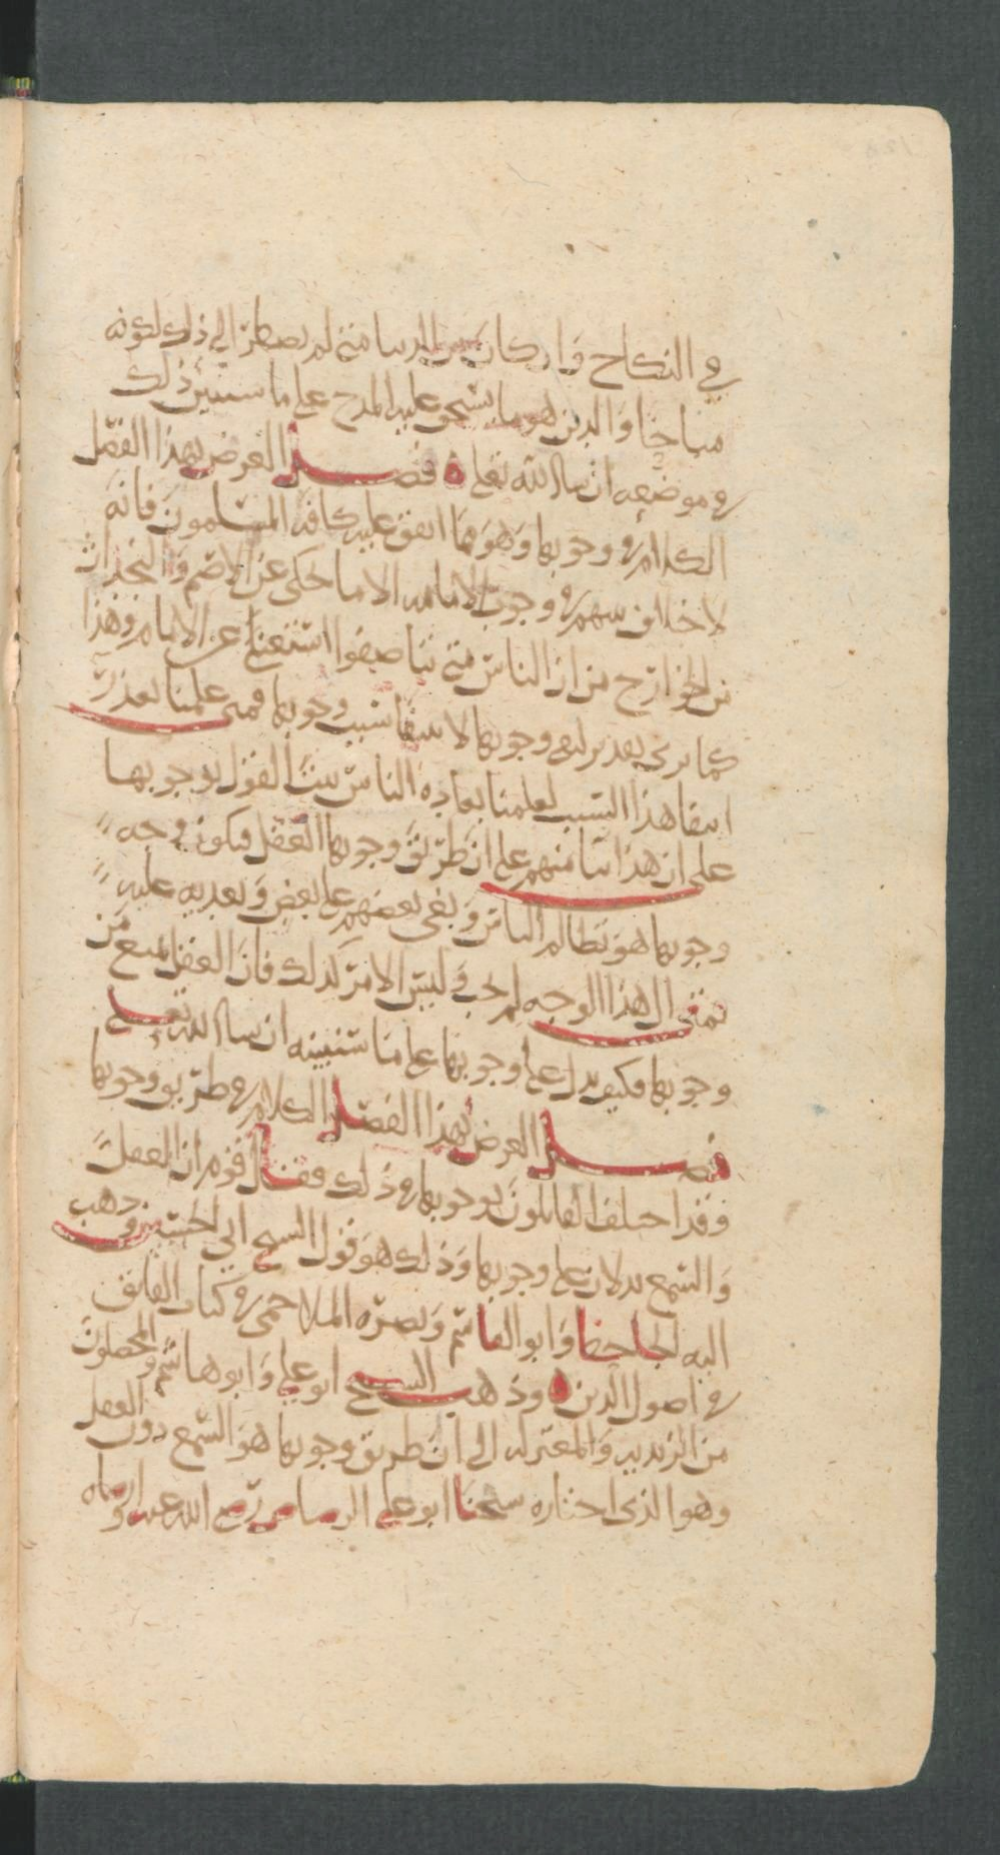 في النكاح وان كان من الدنيا متى لم يضطر الى ذلك لكونه
مباحا والدين هو ما يستحق عليه المدح على ما سنبين ذلك
في موضعه ان شاء الله تعلى ه فصل الغرض بهذا الفصل
الكلام في وجوبها وهو مما اتفق عليه كافة المسلمون فانه
لا خلاف بينهم في وجوب الامامة الا ما حكى عن الاصم والنجدات
من الخوارج من ان الناس متى تناصفوا استغنوا عن الامام وهذا
كما ترى لوجوبها لانتفا سبب وجوبها فمتى علمنا تعذر
انتفا هذا السبب لعلمنا بعادة الناس ثبت القول بوجوبها
على ان هذا بنا منهم على ان طريق وجوبها العقل فيكون وجه
وجوبها هو تظالم الناس وبغي بعضهم على بعض وتعديه عليه
فمتى زال هذا الوجه لم تجب وليس الامر كذلك فان العقل يمنع من
وجوبها فكيف يدل على وجوبها على ما سنبينه ان شاء الله تعلى
فصل الغرض بهذا الفصل الكلام في طريق وجوبها
فقد اختلف القائلون بوجوبها في ذلك فقال قوم ان العقل
والسمع يدلان على وجوبها وذلك هو قول الشيخ ابي الحسين وذهب
اليه الجاحظ وابو القاسم ونصره الملاحمي في كتاب الفائق
في اصول الدين ه وذهب الشيخ ابو علي وابو هاشم والمحصلون
من الزيدية والمعتزلة الى ان طريق وجوبها هو السمع دون العقل
وهو الذي اختاره شيخنا ابو علي الرصاص رضي الله عنه وارضاه